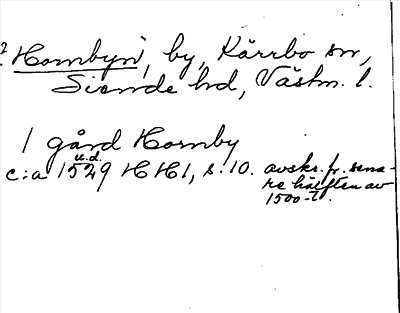 ? Hornbyn, by, Kärrbo sn,
Siende hd, Västm. l.
1 gård Hornby
u.d.
c:a 1529 HH1, s. 10. avskr. fr. sena-
re hälften av
1500-t.